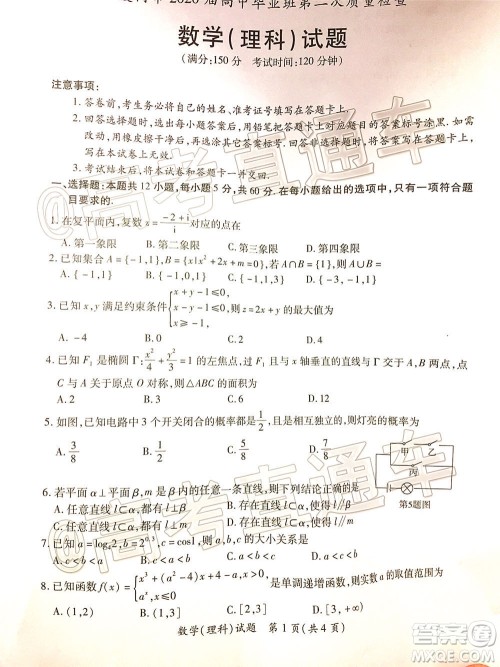 2020届高中毕业班第二次质量检查
数学(理科)试题
(满分:150分 考试时间:120分钟)
注意事项:
1. 答卷前,考生务必将自己的姓名、准考证号填写在答题卡上。
2. 回答选择题时,选出每小题答案后,用铅笔把答题卡对应题目的答案标号涂黑。
如需改动,用橡皮擦干净后,再选涂其他答案标号。回答非选择题时,将答案写在答题卡上,
写在本试卷上无效。
3. 考试结束后,将本试卷和答题卡一并交回。
一、选择题:本题共12小题,每小题5分,共60分。在每小题给出的四个选项中,只有一项符合题
目要求的.
1. 在复平面内,复数z=(-2+i)/i对应的点在
A. 第一象限 B. 第二象限 C. 第三象限 D. 第四象限
2. 已知集合A={-1,1},B={x|x²+2x+a=0},若A∩B={1},则A∪B=
A. {-1,1} B. {-1,3} C. {-3,1} D. {-3,-1,1}
3. 已知x,y满足约束条件{x+y-1≤0, x-y+1≥0, x≥-1},则z=2x+y的最大值为
A. -4 B. 0 C. 2 D. 4
4. 已知F₁是椭圆Γ:x²/4+y²/3=1的左焦点,过F₁且与x轴垂直的直线与Γ交于A,B两点,点
C与A关于原点O对称,则△ABC的面积为
A. 2 B. 3 C. 6 D. 12
5. 如图,已知电路中3个开关闭合的概率都是1/2,且是相互独立的,则灯亮的概率为
A. 3/8 B. 1/2 C. 5/8 D. 7/8
甲
乙
丙
第5题图
6. 若平面α⊥平面β,m是β内的任意一条直线,则下列结论正确的是
A. 任意直线l⊂α,都有l⊥β B. 存在直线l⊂α,使得l⊥β
C. 任意直线l⊂α,都有l⊥m D. 存在直线l⊂α,使得l∥m
C. c<a<b D. b<c<a
8. 已知函数f(x)=
是单调递增函数,则a的取值范围是
A. (1,2)
数学(理科)试题 第1页(共4页)
@高考直通车
@高考直通车
答案圈
MXQE.COM